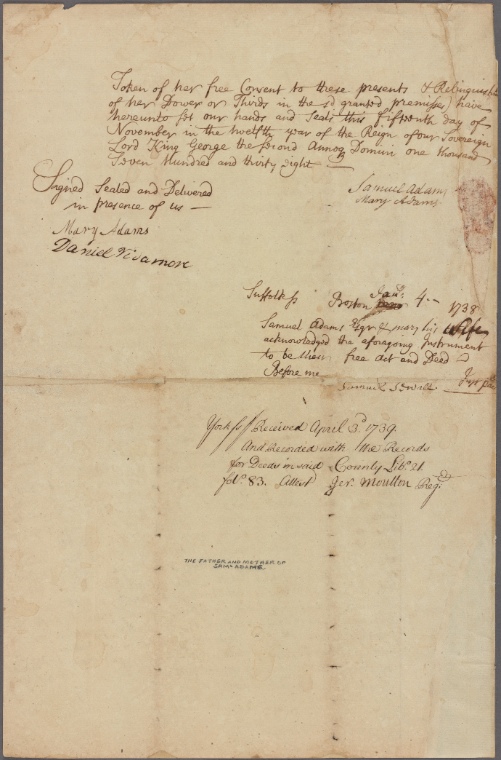 Token of her free Consent to these presents & Relinquish
of her Dower or Thirds in the sd granted premises) have
hereunto set our hands and Seals this fifteenth day of
November in the twelfth year of the Reign of our Sovereign
Lord King George the second Annoq Domini one thousand
Seven Hundred and thirty Eight
Signed Sealed and Delivered
in presence of us —
Samuel Adams
Mary Adams
Mary Adams
Daniel
Suffolk ss Boston Janr. 4. — 1738
Samuel Adams Esqr & mary his Wife
acknowledged the aforegoing Instrument
to be their free Act and Deed
Before me
Samuel Sewall Just pea
York ss Received April 3d. 1739.
And Recorded with the Records
for Deeds in said County Libo. 21
folo. 83. Attest Jer. Moulton Regr.
THE FATHER AND MOTHER OF
SAML. ADAMS.